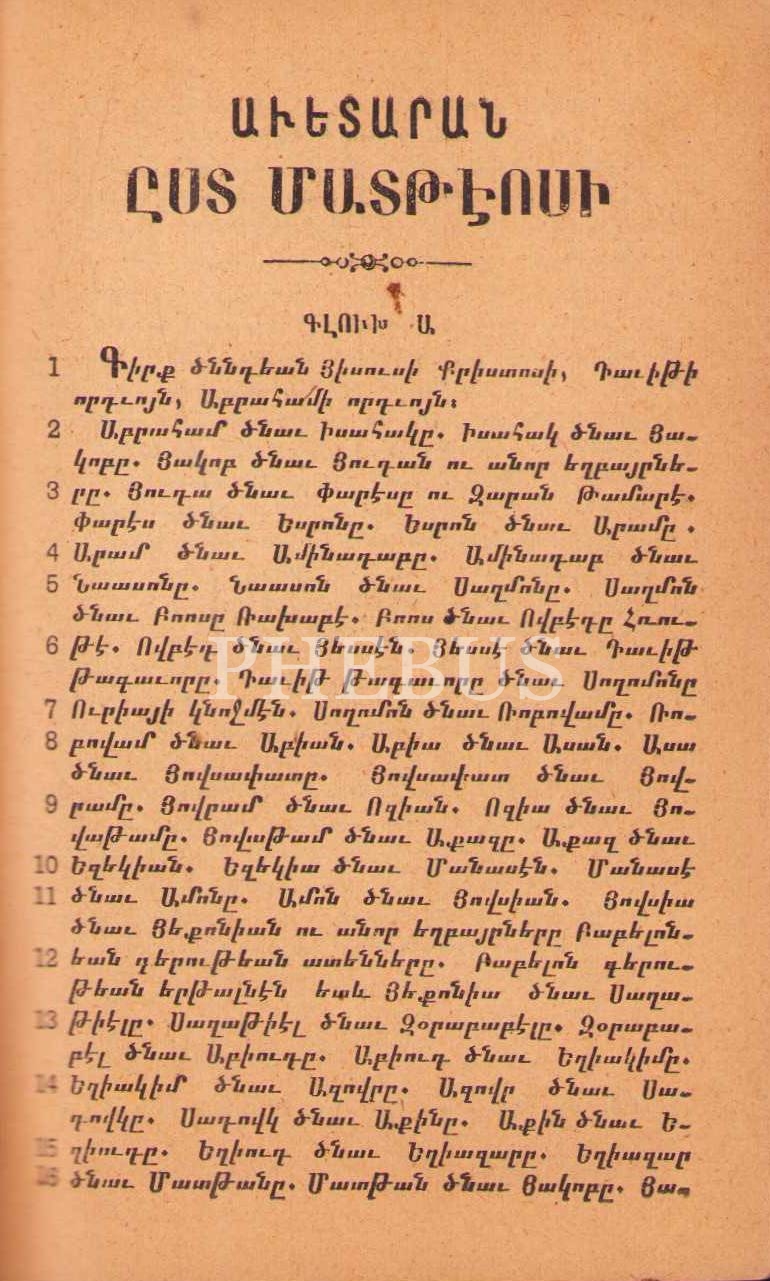 ԱՒԵՏԱՐԱՆ
ԸՍՏ ՄԱՏԹԷՈՍԻ
ԳԼՈՒԽ Ա
1 Գիրք ծննդեան Յիսուսի Քրիստոսի, Դաւիթի
որդւոյն, Աբրահամի որդւոյն։
2 Աբրահամ ծնաւ Իսահակը. Իսահակ ծնաւ Յա-
կոբը. Յակոբ ծնաւ Յուդան ու անոր եղբայրնե-
3 րը. Յուդա ծնաւ Փարէսը ու Զարան Թամարէ.
Փարէս ծնաւ Եսրոնը. Եսրոն ծնաւ Արամը.
4 Արամ ծնաւ Ամինադաբը. Ամինադաբ ծնաւ
5 Նաասոնը. Նաասոն ծնաւ Սաղմոնը. Սաղմոն
ծնաւ Բոոսը Ռախաբէ. Բոոս ծնաւ Ովբէդը Հռու-
6 թէ. Ովբէդ ծնաւ Յեսսէն. Յեսսէ ծնաւ Դաւիթ
թագաւորը. Դաւիթ թագաւորը ծնաւ Սողոմոնը
7 Ուրիայի կնոջմէն. Սողոմոն ծնաւ Ռոբովամը. Ռո-
8 բովամ ծնաւ Աբիան. Աբիա ծնաւ Ասան. Ասա
ծնաւ Յովսափատը. Յովսափատ ծնաւ Յով-
9 րամը. Յովրամ ծնաւ Ոզիան. Ոզիա ծնաւ Յո-
վաթամը. Յովաթամ ծնաւ Աքազը. Աքազ ծնաւ
10 Եզեկիան. Եզեկիա ծնաւ Մանասէն. Մանասէ
11 ծնաւ Ամոնը. Ամոն ծնաւ Յովսիան. Յովսիա
ծնաւ Յեքոնիան ու անոր եղբայրները Բաբելոն-
12 եան գերութեան ատենները. Բաբելոն գերու-
թեան երթալնէն ետև Յեքոնիա ծնաւ Սաղա-
13 թիէլը. Սաղաթիէլ ծնաւ Զօրաբաբէլը. Զօրաբա-
բէլ ծնաւ Աբիուդը. Աբիուդ ծնաւ Եղիակիմը.
14 Եղիակիմ ծնաւ Ազովրը. Ազովր ծնաւ Սա-
դովկը. Սադովկ ծնաւ Աքինը. Աքին ծնաւ Ե-
15 ղիուդը. Եղիուդ ծնաւ Եղիազարը. Եղիազար
16 ծնաւ Մատթանը. Մատթան ծնաւ Յակոբը. Յա-
PHEBUS